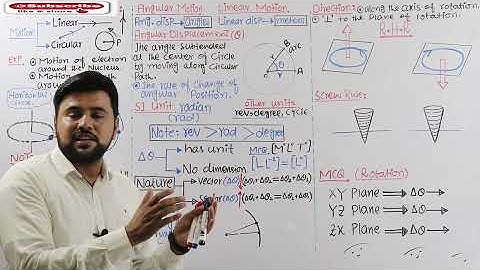 Subscribe
like & share
Motion
Linear
Circular
P
Exp.
Motion of electron
around the Nucleus.
Motion
around
Horizontal
Circle
Angular Motion Linear Motion
Ang. disp → angles Linear disp → meters
Angular Displacement (θ)
The angle subtended
at the center of Circle
by moving along Circular
Path.
The rate of change of
angular Position.
SI Unit radian
(rad)
other units
rev, degree, cycle
Note: rev > rad > degree
Δθ
has unit
No dimension
MCQ [M° L° T°]
[L L⁻¹] = [L°]
Nature
vector (Δθ)
scalar (Δθ)
B
arc
A
θ
r
Direction:
along the axis of rotation.
"⊥" to the Plane of rotation.
R.H.R
Screw Rule:
MCQ (Rotation)
XY Plane ⇒ Δθ →
YZ Plane ⇒ Δθ →
ZX Plane ⇒ Δθ →